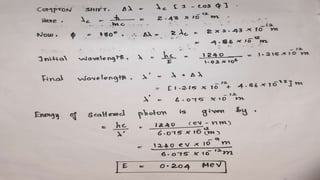 COMPTON SHIFT. Δλ = λc [1 - cos φ].
Here. λc = h/mc = 2.43 × 10⁻¹² m
Now. φ = 180°. ∴ Δλ = 2λc = 2 × 2.43 × 10⁻¹² m
4.86 × 10⁻¹² m
Initial wavelength. λ = hc/E = 1240/1.02 × 10⁶ = 1.215 × 10⁻¹² m
Final wavelength. λ' = λ + Δλ
= [1.215 × 10⁻¹² + 4.86 × 10⁻¹²] m
λ' = 6.075 × 10⁻¹² m
Energy of scattered photon is given by.
= hc/λ' = 1240 (eV-nm)/6.075 × 10⁻¹² (m)
= 1240 eV × 10⁻⁹ m/6.075 × 10⁻¹² m
E = 0.204 MeV